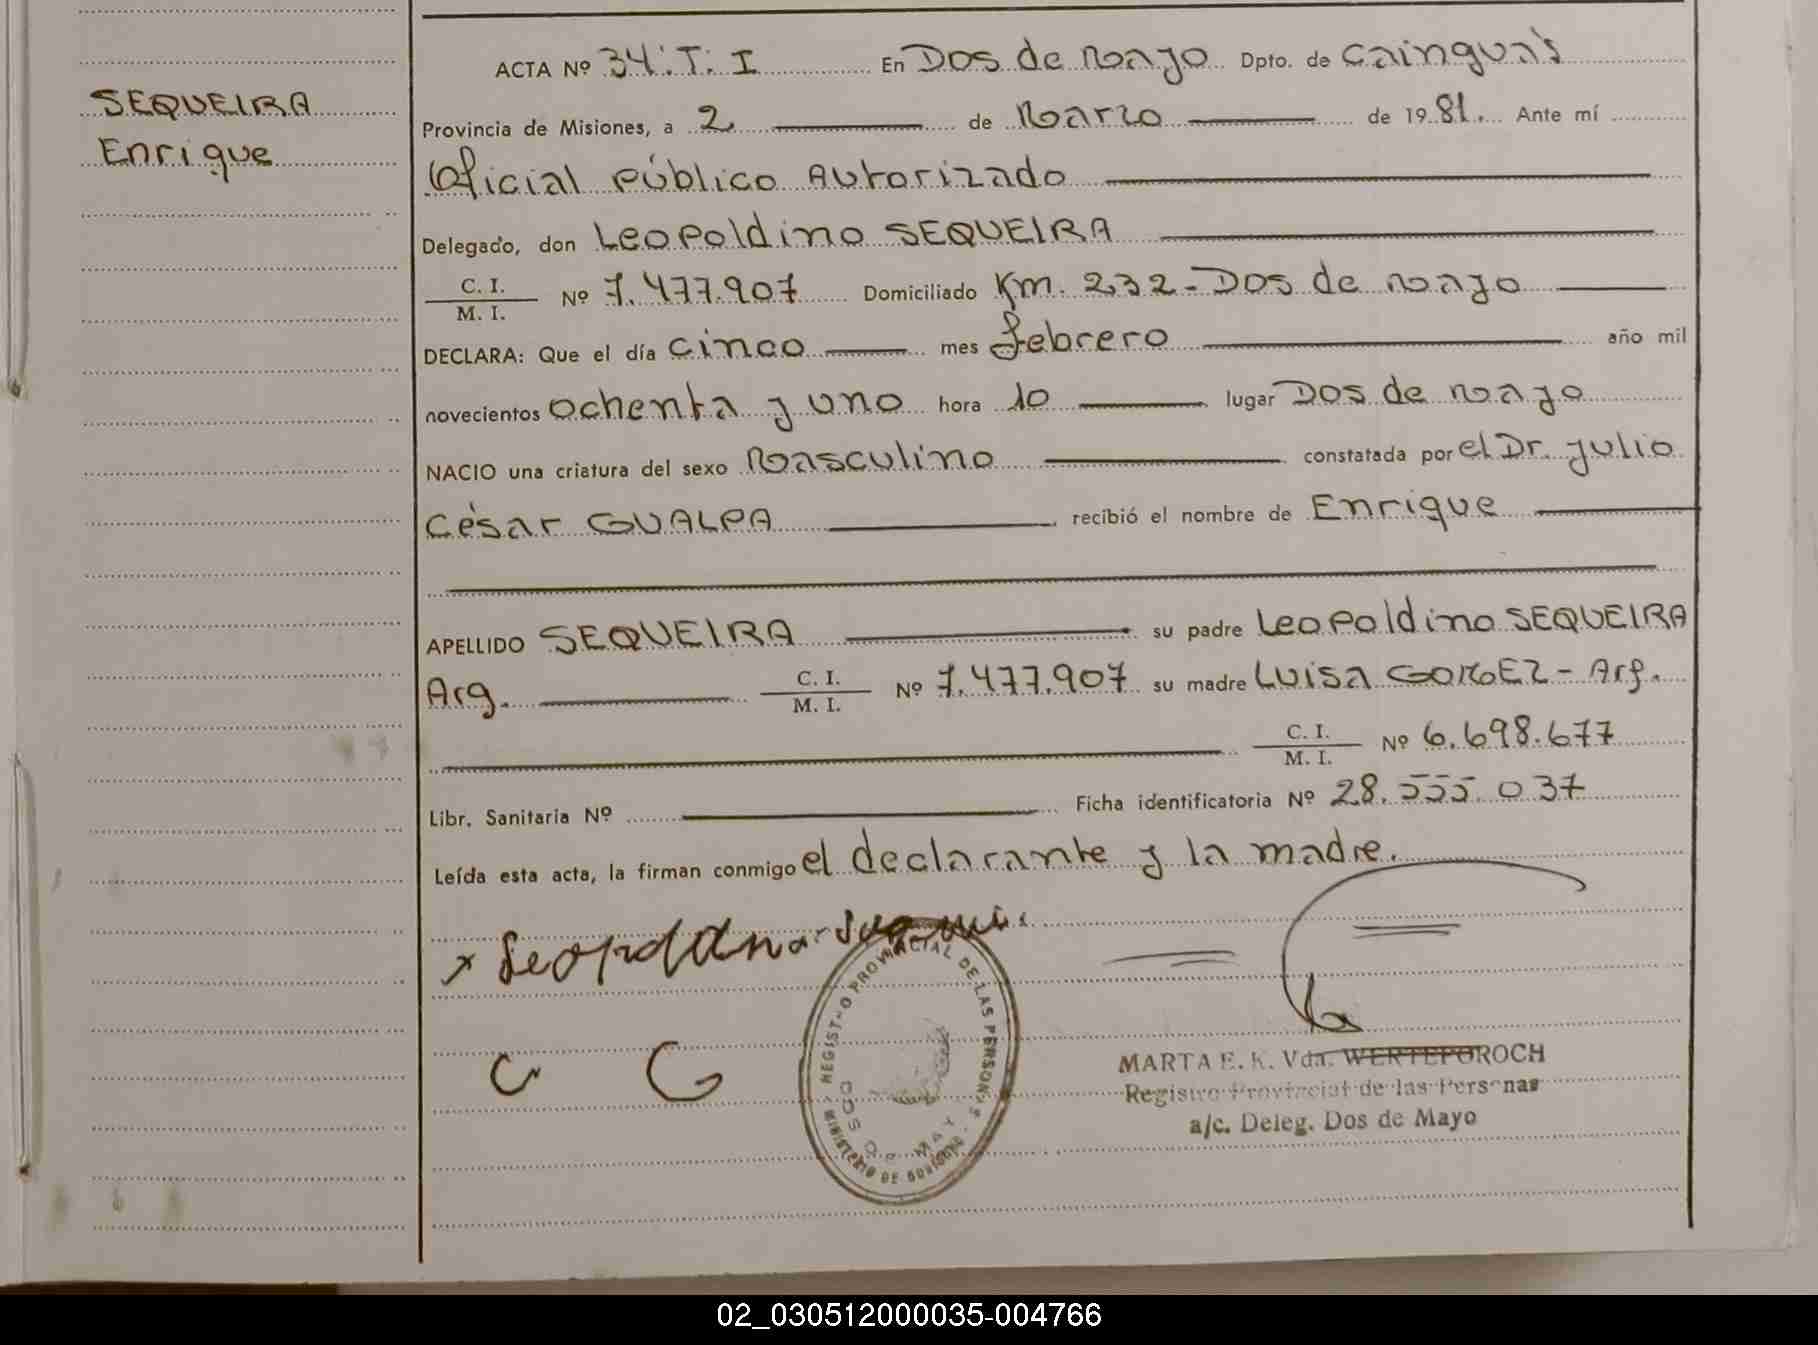 SEQUEIRA
Enrique
ACTA Nº 34: T: I En Dos de Mayo Dpto. de Cainguás
Provincia de Misiones, a 2 de Marzo de 1981. Ante mí
Oficial Público Autorizado
Delegado, don Leopoldino SEQUEIRA
C. I.
M. I.
Nº 7.477.907 Domiciliado Km. 232 - Dos de Mayo
DECLARA: Que el día cinco mes febrero año mil
novecientos ochenta y uno hora 10 lugar Dos de Mayo
NACIO una criatura del sexo Masculino constatada por el Dr. Julio
César GUALPA recibió el nombre de Enrique
APELLIDO SEQUEIRA su padre Leopoldino SEQUEIRA
Arg. C. I. Nº 7.477.907 su madre LUISA GOMEZ - Arg.
M. I.
C. I. Nº 6.698.677
M. I.
Libr. Sanitaria Nº Ficha identificatoria Nº 28.555.037
Leída esta acta, la firman conmigo el declarante y la madre.
REGISTRO PROVINCIAL DE LAS PERSONAS
MINISTERIO DE GOBIERNO
DOS DE MAYO
MARTA E. K. Vda. WERTEPOROCH
Registro Provincial de las Personas
a/c. Deleg. Dos de Mayo
02_030512000035-004766